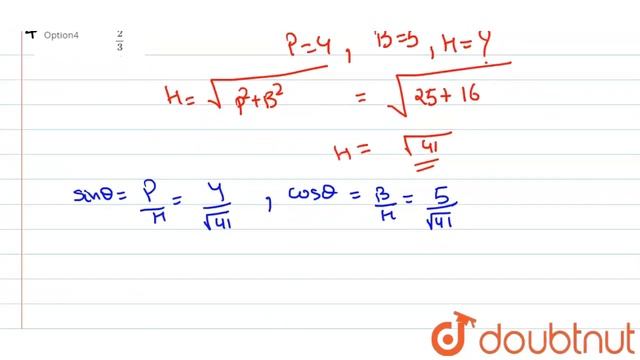 Option4 2/3
P=4 , B=5 , H=Y
H = √P²+B² = √25+16
H = √41
sinθ = P/H = 4/√41 , cosθ = B/H = 5/√41
doubtnut